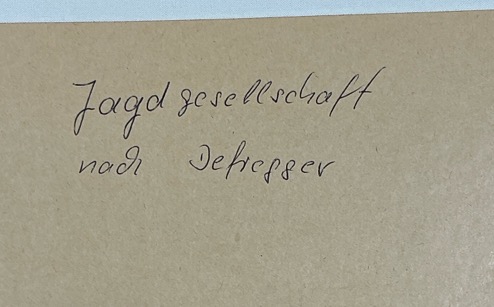 Jagdgesellschaft
nach Defregger